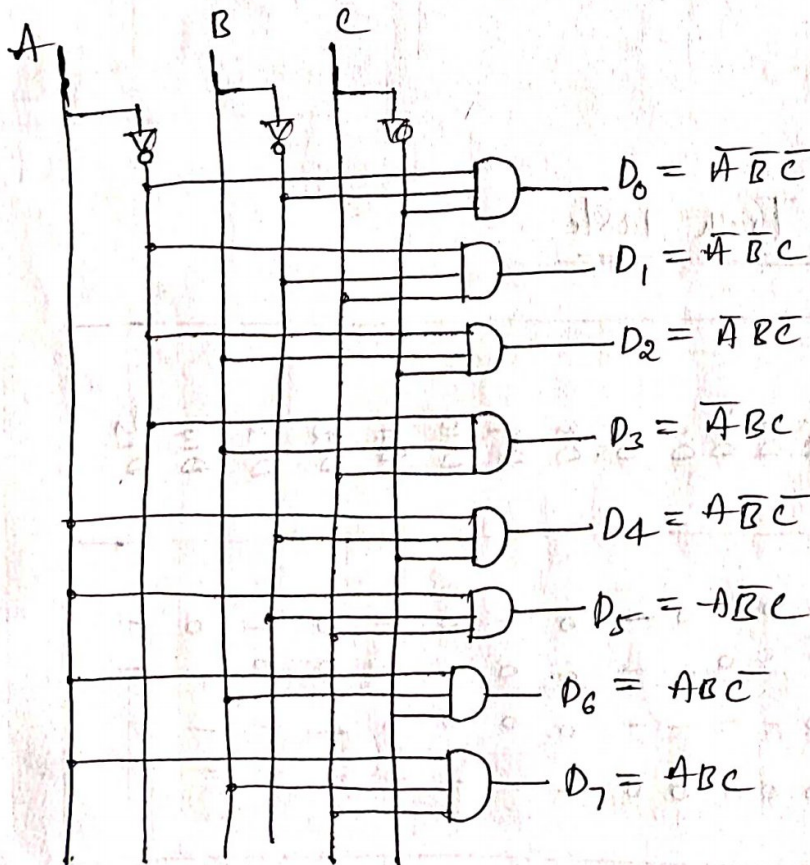 A B C
D₀ = A̅ B̅ C̅
D₁ = A̅ B̅ C
D₂ = A̅ B C̅
D₃ = A̅ B C
D4 = A B̅ C̅
D₅ = A B̅ C
D₆ = A B C̅
D₇ = A B C